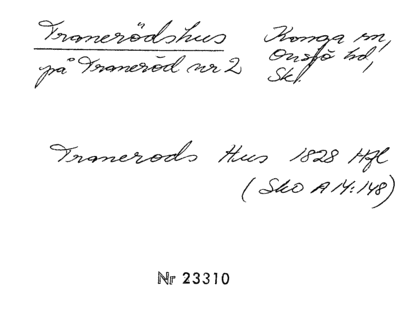 Tranerödshus Konga sn,
på Traneröd nr 2 Onsjö hd,
Skl.
Tranerods Hus 1828 Hfl
(Sko A 14:148)
Nr 23310